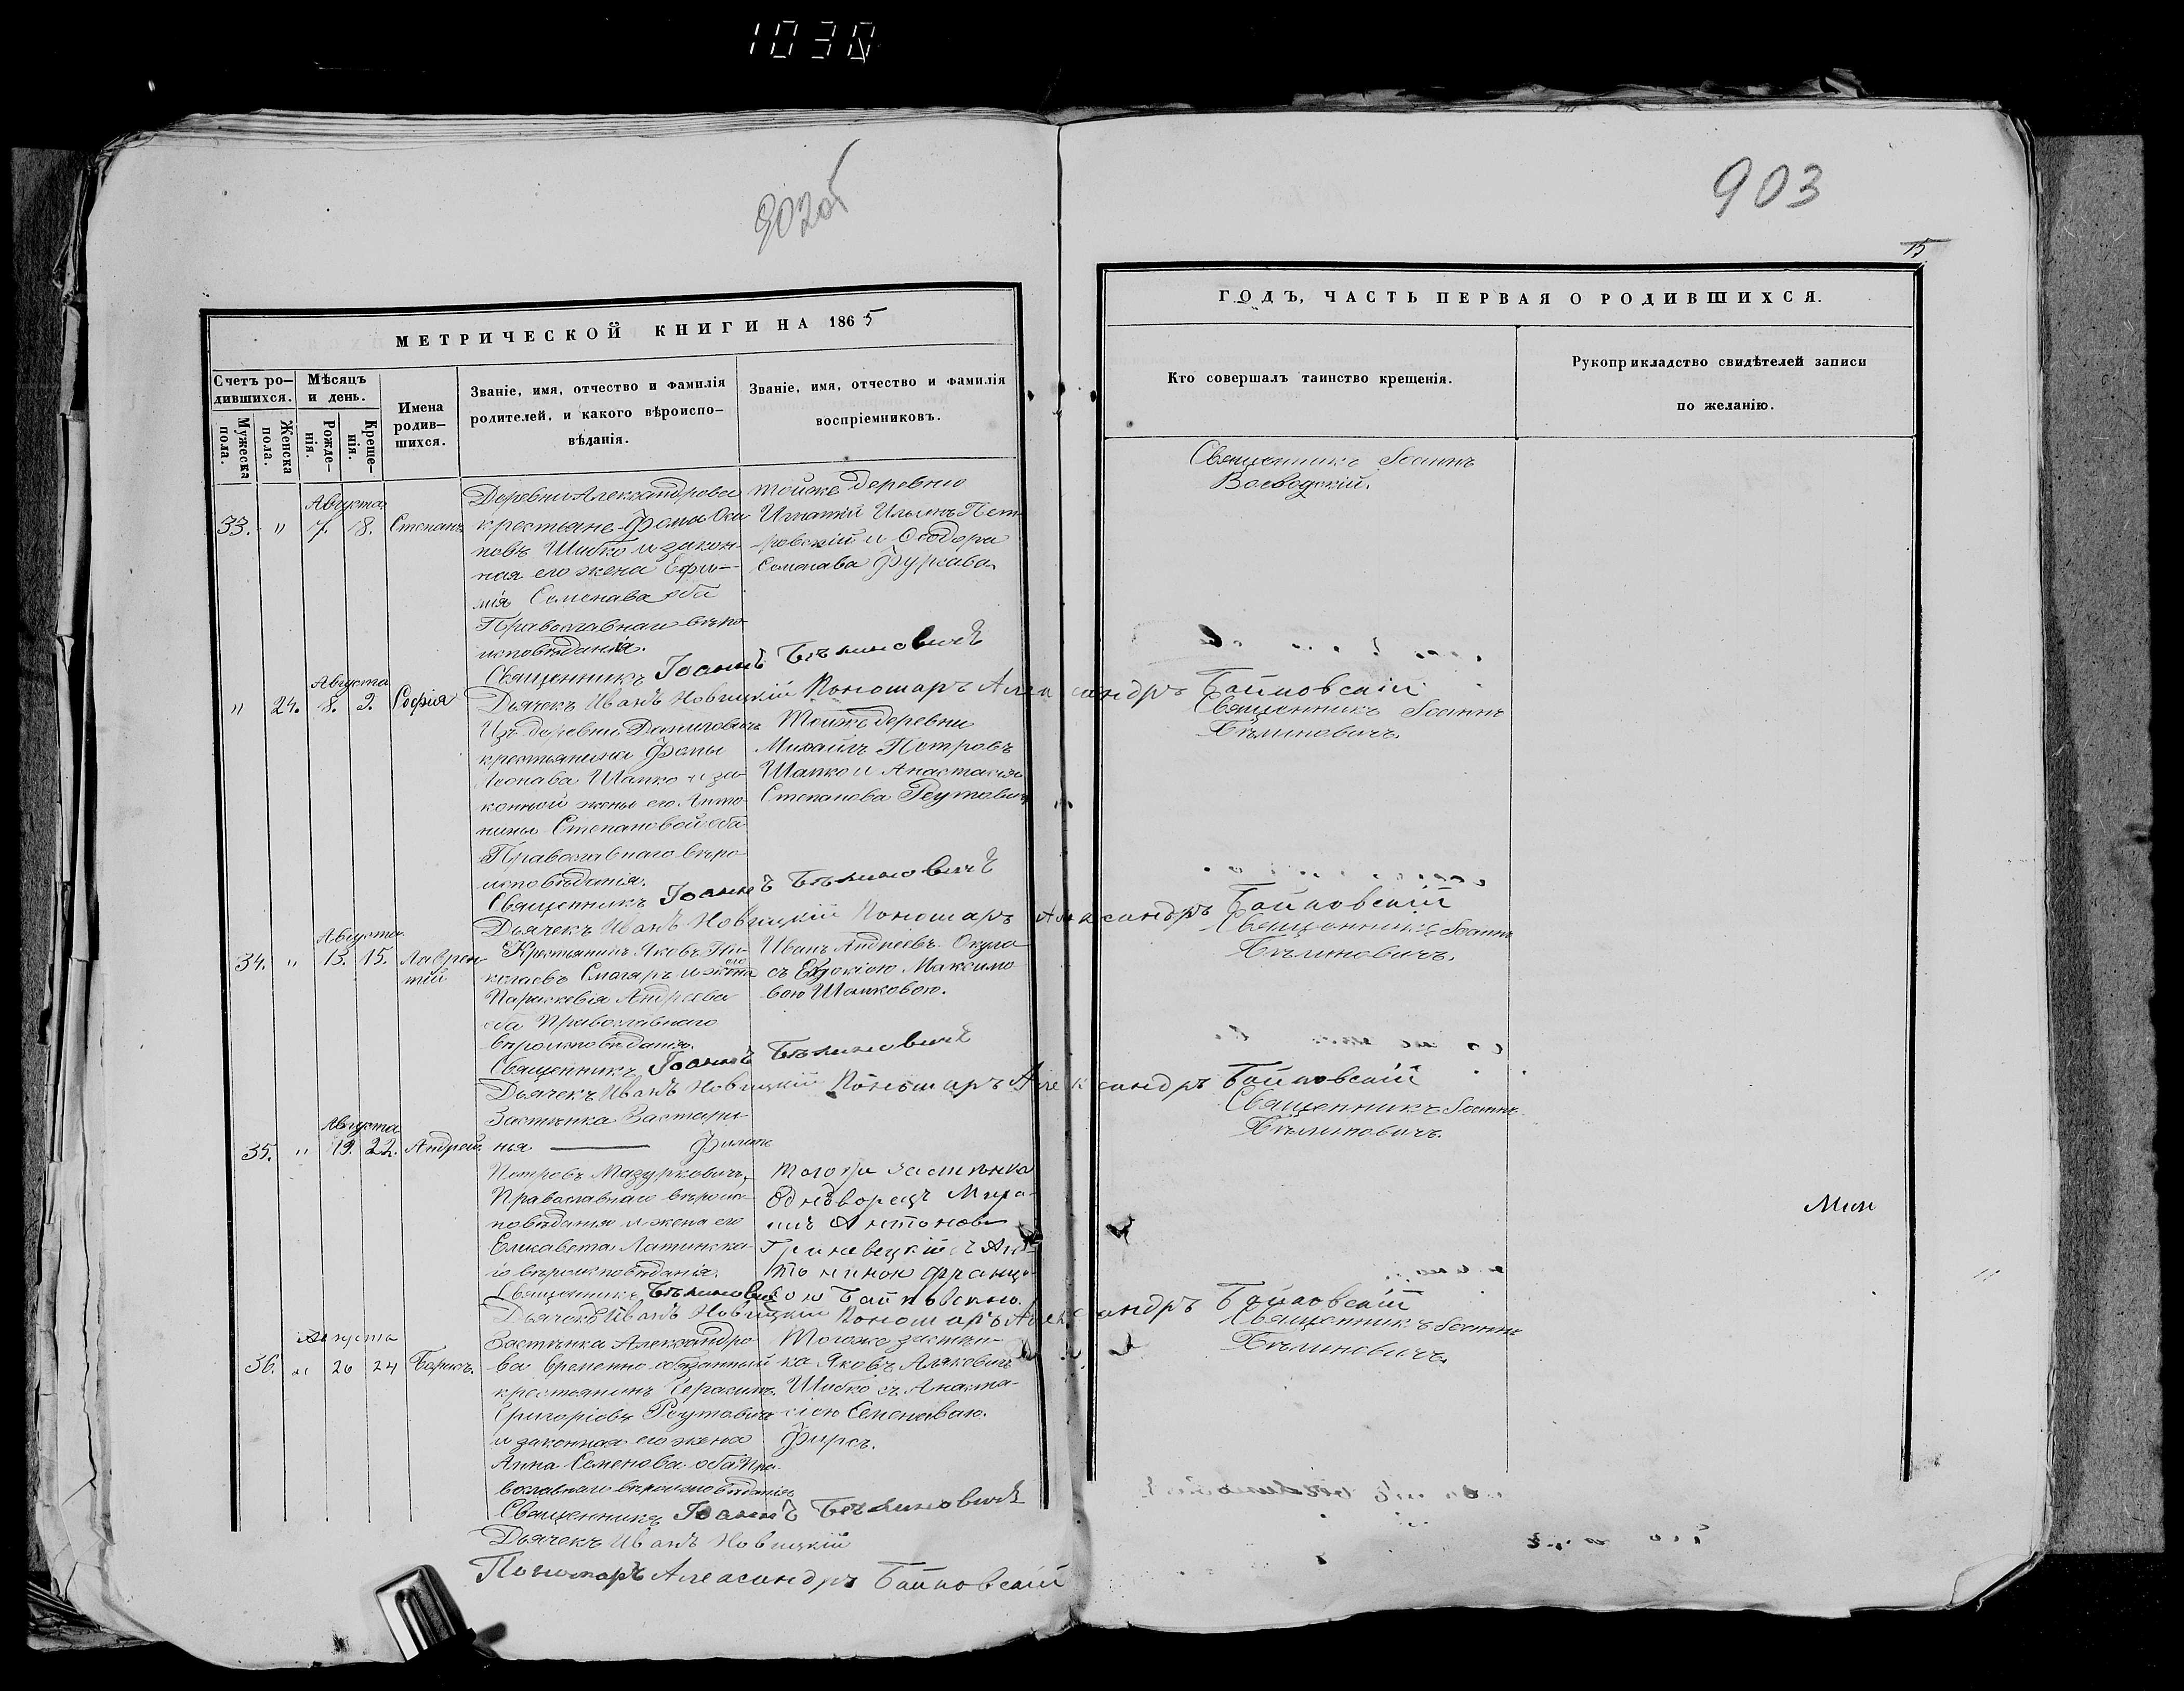 1030
902об
903
15
МЕТРИЧЕСКОЙ КНИГИ НА 1865
ГОДЪ, ЧАСТЬ ПЕРВАЯ О РОДИВШИХСЯ.
Счетъ ро-
дившихся.
Мѣсяцъ
и день.
Имена
родив-
шихся.
Званіе, имя, отчество и фамилія
родителей, и какого вѣроиспо-
вѣданія.
Званіе, имя, отчество и фамилія
воспріемниковъ.
Кто совершалъ таинство крещенія.
Рукоприкладство свидѣтелей записи
по желанію.
Мужеска
пола.
Женска
пола.
Рожде-
нія.
Креще-
нія.
Августа
33. " 7. 8. Степанъ
Деревни Александрова
крестьяне Фомы Оси
повъ Шибко и закон-
ная его жена Ефи-
мія Семенава оба
Православнаи вѣро-
исповѣданія.
тойже деревню
Игнатій Ильинъ Пет-
ровскій и Ѳеодора
Семенава Фурсава
Священникъ Іоаннъ
Воеводскій.
Священникъ Іоаннъ Бѣлиновичъ
Дьячекъ Иванъ Новицкій Пономаръ Александръ Байковскій
Августа
" 24. 8. 9. Софія
Изъ деревни Даниловичъ
крестьянина Фомы
Леонава Шапко и за-
конной жены его Анто-
нины Степановой оба
Православнаго вѣро-
исповѣданія.
Тойжъ деревни
Михаилъ Петровъ
Шапко и Анастасія
Степанова Реутовичъ
Священникъ Іоаннъ
Бѣлиновичъ.
Священникъ Іоаннъ Бѣлиновичъ
Дьячекъ Иванъ Новицкій Пономаръ Александръ Байковскій
Августа
34. " 13. 15. Лаврен-
тій
Крестьянинъ Яковъ Ни-
колаевъ Смагаръ и жена его
Параскевія Андреева
оба Православнаго
вѣроисповѣданія.
Иванъ Андреевъ Окула
съ Евдокіею Максимо
вою Шапковою.
Священникъ Іоаннъ
Бѣлиновичъ.
Священникъ Іоаннъ Бѣлиновичъ
Дьячекъ Иванъ Новицкій Пономаръ Александръ Байковскій
Августа
35. " 19. 22. Андрей.
Застѣнка Застари
нья Филипъ
Петровъ Мазуркевичъ,
Православнаго вѣроис-
повѣданія и жена его
Елисавета Латинска-
го вѣроисповѣданія.
Того же застѣнка
Однодворецъ
Антоновъ
Гриневецкій съ Ан-
тониною Франц-
ою Байковскою.
Священникъ Іоаннъ
Бѣлиновичъ.
Мин
Священникъ Бѣлиновичъ
Дьячекъ Иванъ Новицкій Пономаръ Александръ Байковскій
Августа
36. " 20 24 Борисъ.
Застѣнка Александро
ва временно обязанный
крестьянинъ Герасимъ
Григоріевъ Реутовичъ
и законная его жена
Анна Семенова оба Пра-
вославнаго вѣроисповѣданія
Тогоже застѣн-
ка Яковъ
Шибко съ Анаста-
сіею Семеноваю.
Фирсъ.
Священникъ Іоаннъ
Бѣлиновичъ.
Священникъ Іоаннъ Бѣлиновичъ
Дьячекъ Иванъ Новицкій
Пономаръ Александръ Байковскій